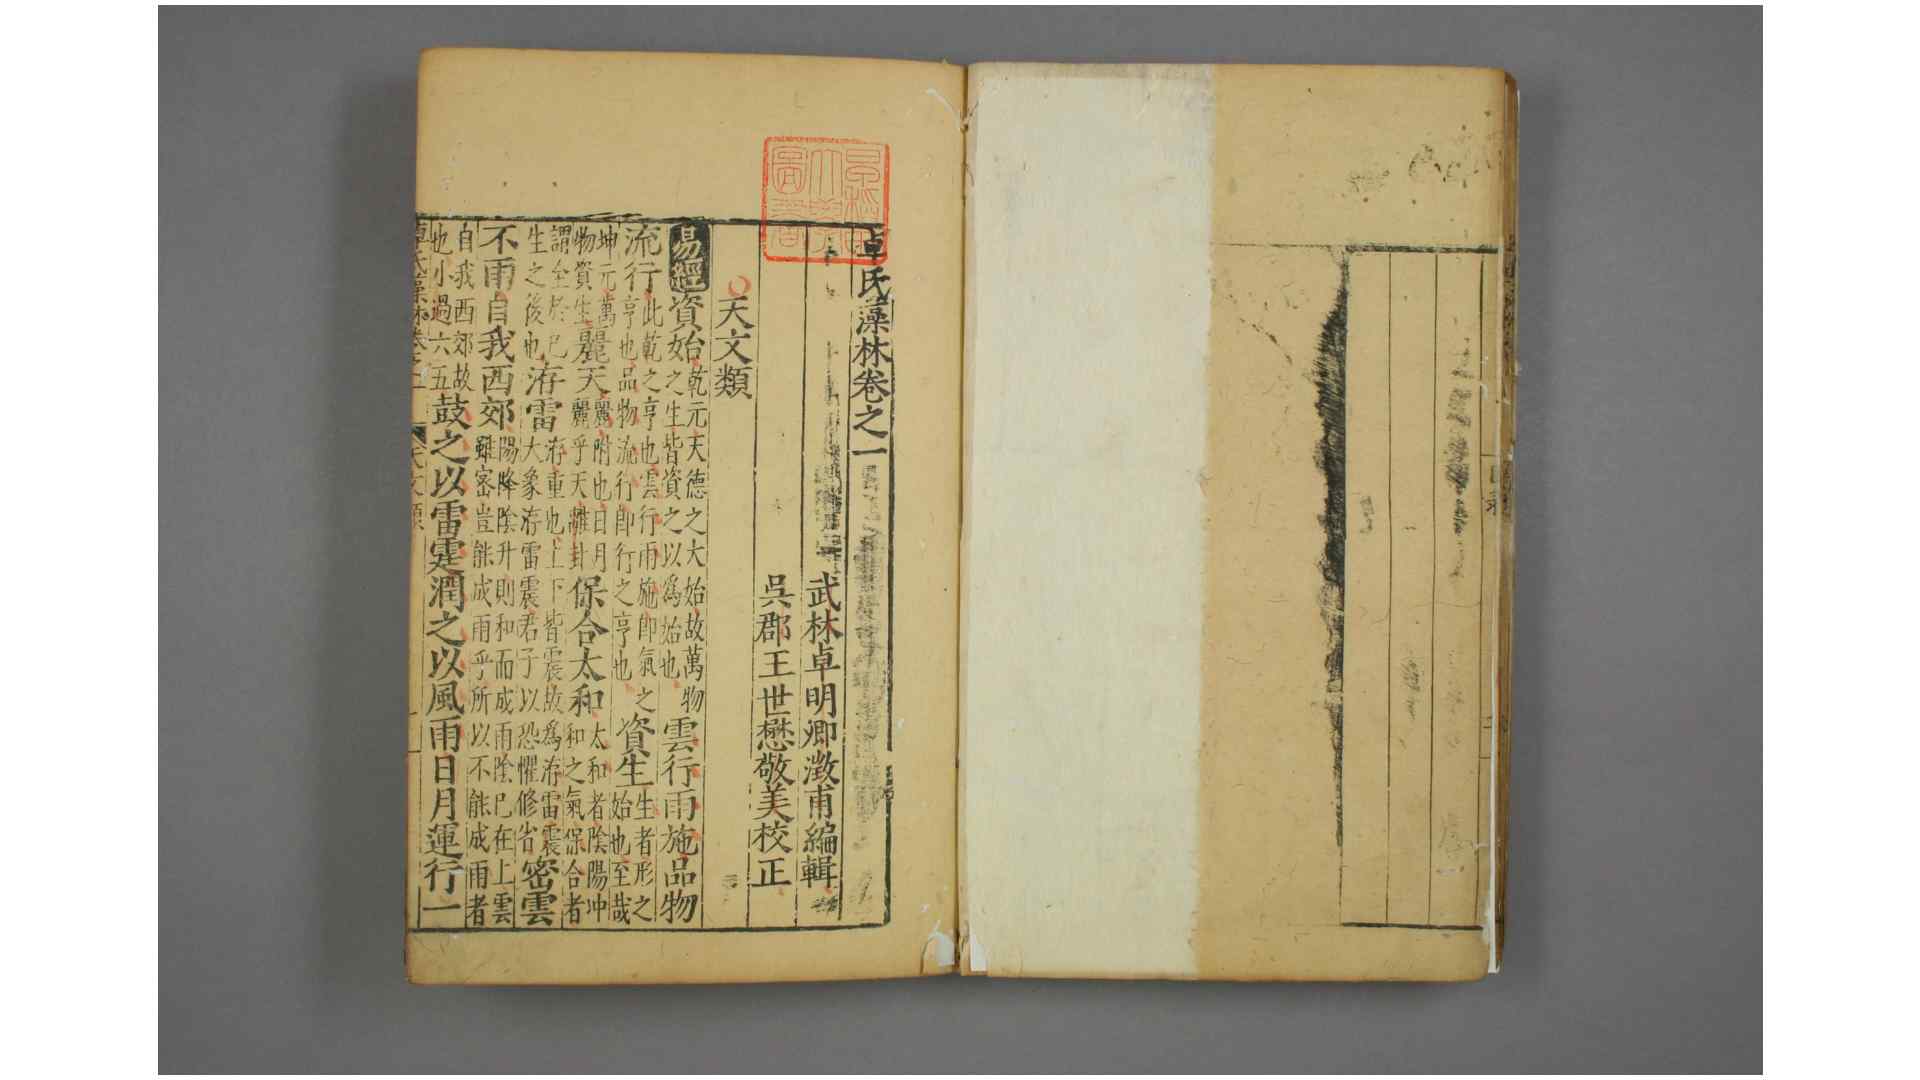 卓氏藻林卷之一
武林卓明卿澂甫編輯
吳郡王世懋敬美校正
天文類
易經資始乾元天德之大始故萬物之生皆資之以爲始也雲行雨施品物
流行此乾之亨也雲行雨施卽氣之亨也品物流行卽行之亨也資生生者形之始也至哉
坤元萬物資生麗天麗附也日月麗乎天離卦保合太和太和者陰陽冲和之氣保合者
謂全於已生之後也洊雷洊重也上下皆震故爲洊雷震大象洊雷震君子以恐懼修省密雲
不雨自我西郊陽降陰升則和而成雨陰已在上雲雖密豈能成雨乎所以不能成雨者
自我西郊故也小過六五鼓之以雷霆潤之以風雨日月運行一
卓氏藻林卷之一 天文類 一